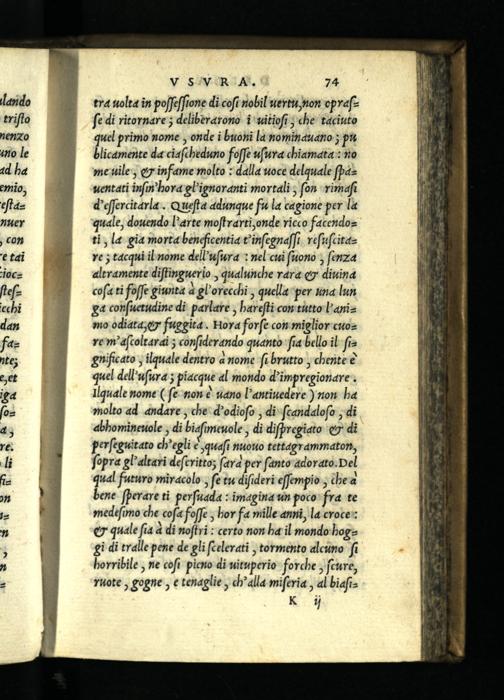 VSVRA. 74
tra uolta in possessione di cosi nobil uertu, non opras=
se di ritornare; deliberarono i uitiosi, che taciuto
quel primo nome, onde i buoni la nominauano; pu
blicamente da ciascheduno fosse usura chiamata: no
me uile, & infame molto: dalla uoce delquale spa=
uentati insin'hora gl'ignoranti mortali, son rimasi
d'essercitarla. Questa adunque fu la cagione per la
quale, douendo l'arte mostrarti, onde ricco facendo=
ti, la gia morta beneficentia t'insegnassi resuscita=
re; tacqui il nome dell'usura: nel cui suono, senza
altramente distinguerlo, qualunche rara & diuina
cosa ti fosse giunta à gl'orecchi, quella per una lun
ga consuetudine di parlare, haresti con tutto l'ani=
mo odiata, & fuggita. Hora forse con miglior cuo=
re m'ascoltarai; considerando quanto sia bello il si=
gnificato, ilquale dentro à nome si brutto, chente è
quel dell'usura; piacque al mondo d'impregionare.
Ilquale nome (se non è uano l'antiuedere) non ha
molto ad andare, che d'odioso, di scandaloso, di
abhomineuole, di biasimeuole, di dispregiato & di
perseguitato ch'egli è, quasi nuouo tettagrammaton,
sopra gl'altari descritto; sarà per santo adorato. Del
qual futuro miracolo, se tu disideri essempio, che à
bene sperare ti persuada: imagina un poco fra te
medesimo che cosa fosse, hor fa mille anni, la croce:
& quale sia à di nostri: certo non ha il mondo hog=
gi di tralle pene de gli scelerati, tormento alcuno si
horribile, ne cosi pieno di uituperio forche, scure,
ruote, gogne, e tenaglie, ch'alla miseria, al biasi=
K ij